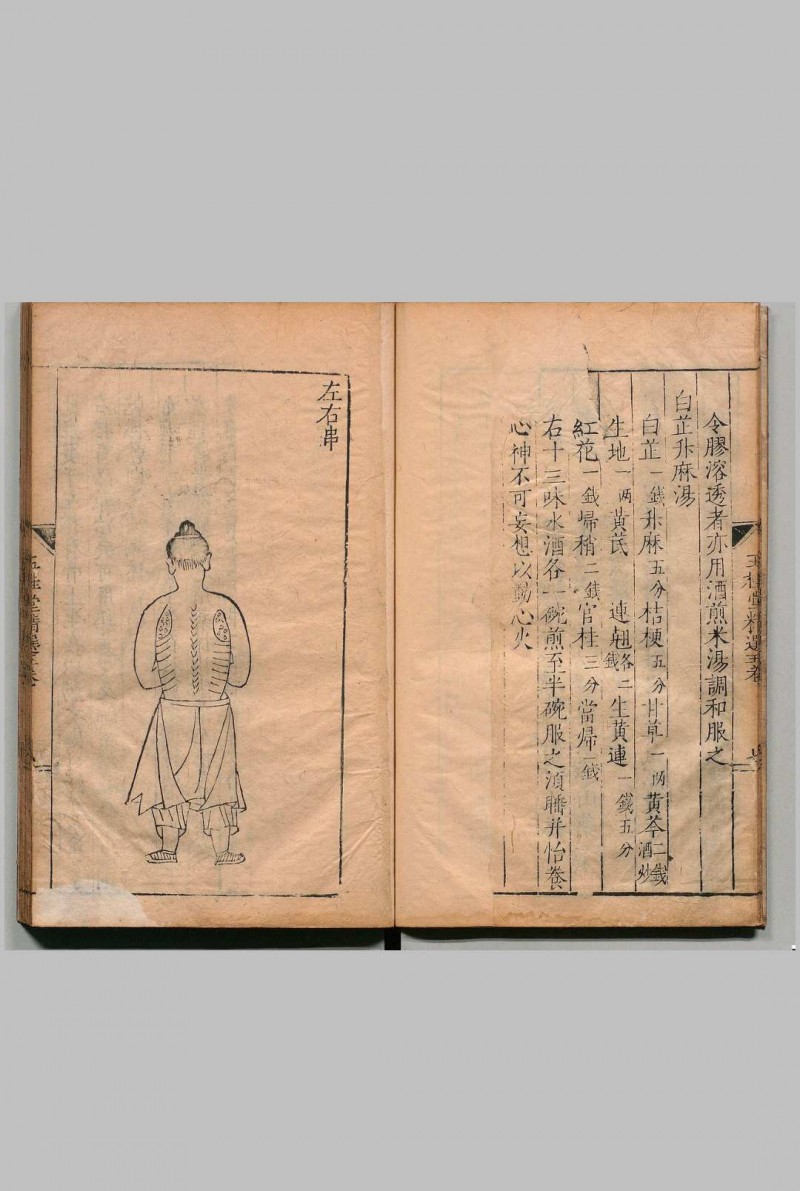 令膠溶透者亦用酒煎米湯調和服之
白芷升麻湯
白芷一錢升麻五分桔梗五分甘草一兩黃芩二錢酒炒
生地一兩黃芪 連翹各二錢生黃連一錢五分
紅花一錢歸稍二錢官桂三分當歸一錢
右十三味水酒各一碗煎至半碗服之須睡并怡養
心神不可妄想以動心火
左右串